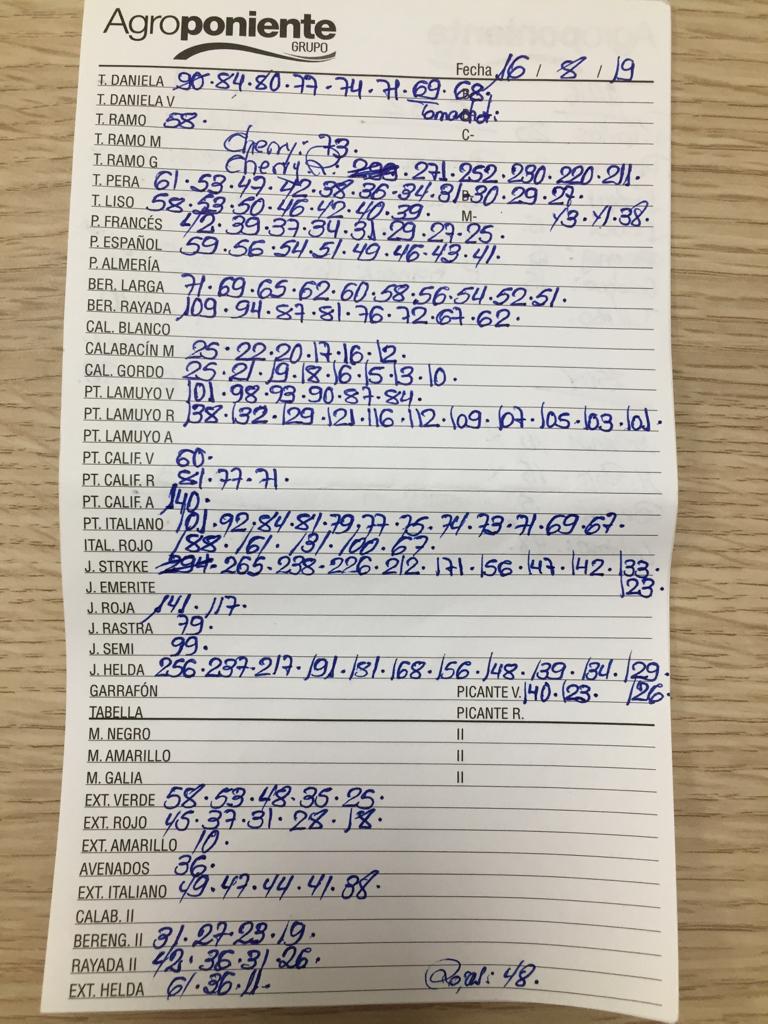 Agroponiente
GRUPO
Fecha 16 / 8 / 19
T. DANIELA 90·84·80·77·74·71·69·68· B-
T. DANIELA V
T. RAMO 58· C-
T. RAMO M Cherry: 73·
T. RAMO G 271·252·230·220·211·
T. PERA 61·53·47·42·38·36·34·31·30·29·27· B-
T. LISO 58·53·50·46·42·40·39· M-
P. FRANCÉS 42·39·37·34·31·29·27·25·
P. ESPAÑOL 59·56·54·51·49·46·43·41·
P. ALMERÍA
BER. LARGA 71·69·65·62·60·58·56·54·52·51·
BER. RAYADA 109·94·87·81·76·72·67·62·
CAL. BLANCO
CALABACÍN M 25·22·20·17·16·12·
CAL. GORDO 25·21·19·18·16·15·13·10·
PT. LAMUYO V 101·98·93·90·87·84·
PT. LAMUYO R 138·132·129·121·116·112·109·107·105·103·101·
PT. LAMUYO A
PT. CALIF. V 60·
PT. CALIF. R 81·77·71·
PT. CALIF. A 140·
PT. ITALIANO 101·92·84·81·79·77·75·74·73·71·69·67·
ITAL. ROJO 188·161·131·100·67·
J. STRYKE 294·265·238·226·212·171·156·147·142·133·
J. EMERITE 123·
J. ROJA 141·117·
J. RASTRA 79·
J. SEMI 99·
J. HELDA 256·237·217·191·181·168·156·148·139·134·129·
GARRAFÓN PICANTE V. 140·123· 126·
TABELLA PICANTE R.
M. NEGRO II
M. AMARILLO II
M. GALIA II
EXT. VERDE 58·53·48·35·25·
EXT. ROJO 45·37·31·28·18·
EXT. AMARILLO 10·
AVENADOS 36·
EXT. ITALIANO 49·47·44·41·38·
CALAB. II
BERENG. II 31·27·23·19·
RAYADA II 42·36·31·26·
EXT. HELDA 61·36·11· 48·